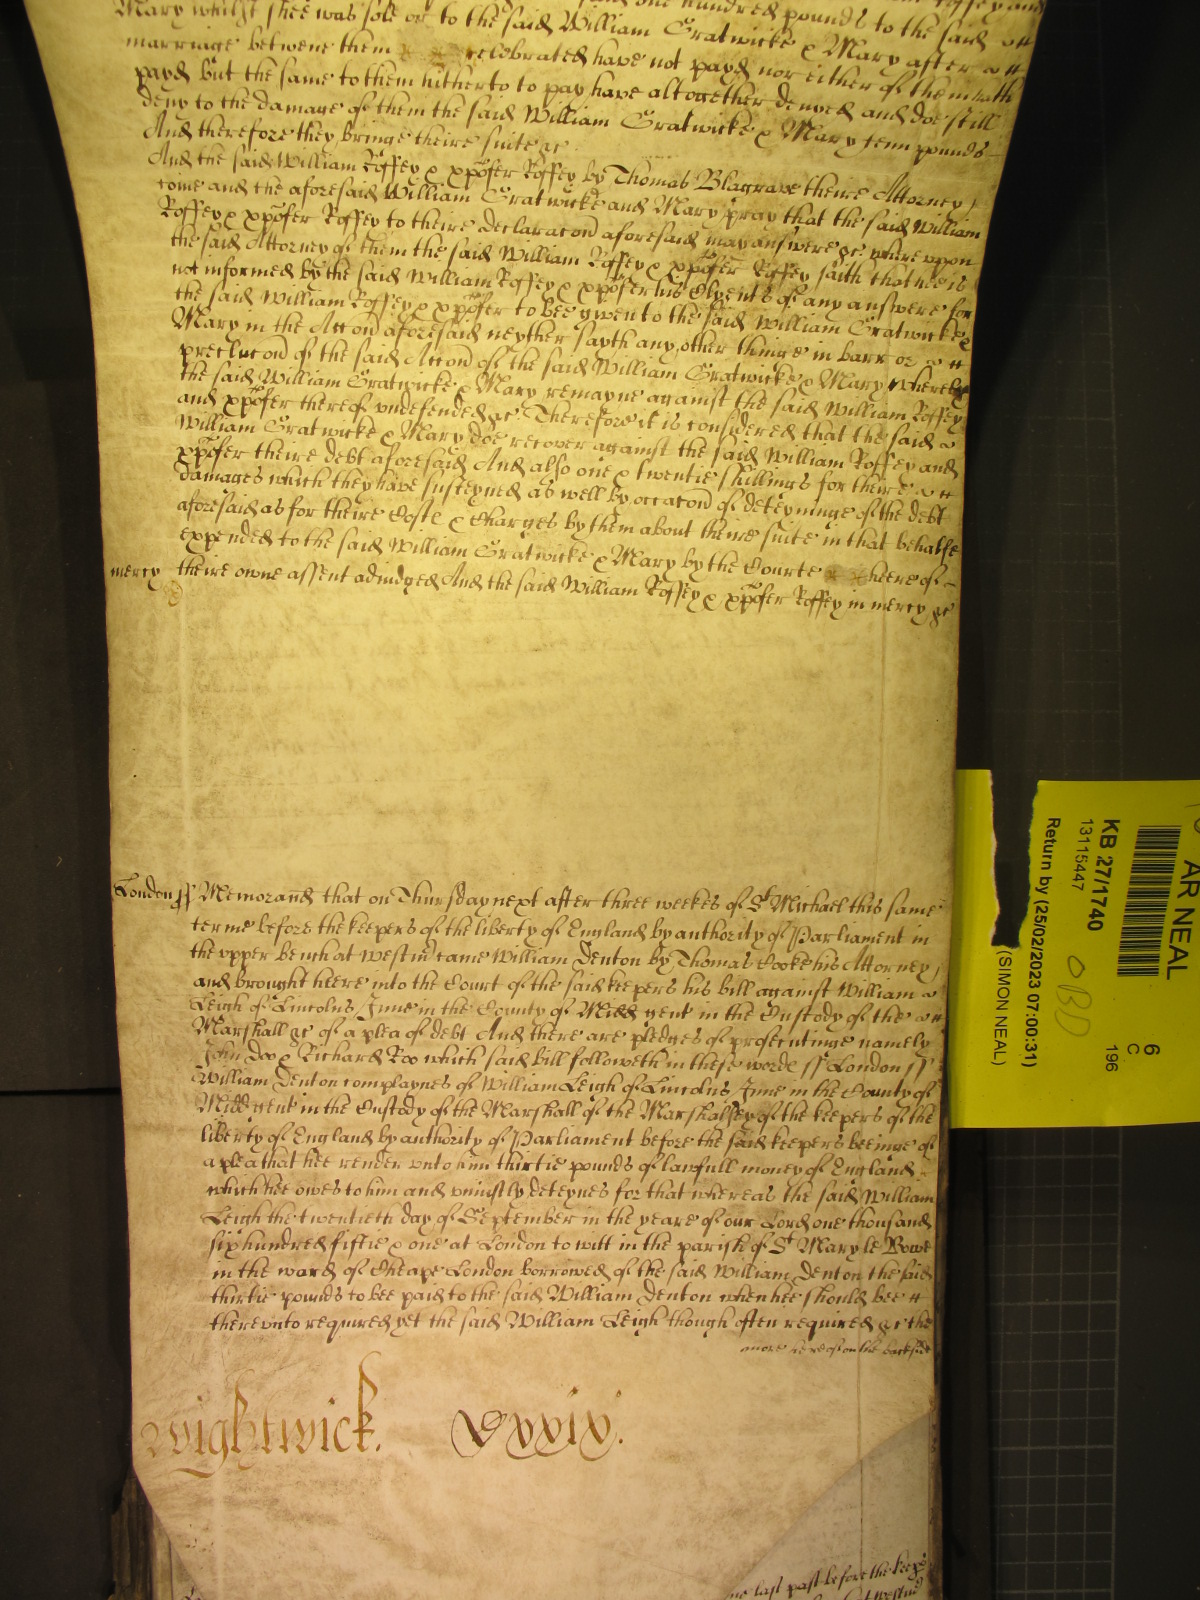 said one hundred pounds to the said
Mary whilst shee was sole or to the said William Gratwicke & Mary after
marriage betwene them celebrated have not payd nor either of them hath
payd but the same to them hitherto to pay have altogether denyed and doe still
deny to the damage of them the said William Gratwicke & Mary tenn pounds
And therefore they bringe theire suite &c
And the said William Roffey & xpofer Roffey by Thomas Blagrave theire Attorney
come and the aforesaid William Gratwicke and Mary pray that the said William
Roffey & xpofer Roffey to theire declaracon aforesaid may answere &c where uppon
the said Attorney of them the said William Roffey & xpofer Roffey saith that hee is
not informed by the said William Roffey & xpofer his Clyents of any answere for
the said William Roffey & xpofer to bee given to the said William Gratwicke &
Mary in the Accon aforesaid neyther sayth any other thinge in barr or
preclucon of the said Accon of the said William Gratwicke & Mary whereby
the said William Gratwicke & Mary remayne against the said William Roffey
and xpofer thereof undefended &c Therefore it is considered that the said
William Gratwicke & Mary doe recover against the said William Roffey and
xpofer theire debt aforesaid And also one & twentie shillings for theire
damages which they have susteyned as well by occacon of deteyninge of the debt
aforesaid as for theire Coste & Charges by them about theire suite in that behalfe
expended to the said William Gratwicke & Mary by the Courte heere of
mercy theire owne assent adiudged And the said William Roffey & xpofer Roffey in mercy &c
London ss Memorand that on Thursday next after three weekes of St Michael this same
terme before the keepers of the liberty of England by authority of Parliament in
the upper bench at Westm came William Denton by Thomas Cooke his Attorney
and brought heere into the Court of the said keepers his bill against William
Leigh of Lincolns Inne in the County of Midd gent in the Custody of the
Marshall &c of a plea of debt And there are pledges of prosecutinge namely
John Doo & Richard Roo which said bill followeth in these worde ss London ss
William Denton complaynes of William Leigh of Lincolns Inne in the County of
Midd gent in the Custody of the Marshall of the Marshalsey of the keepers of the
liberty of England by authority of Parliament before the said keepers beeinge of
a plea that hee render unto him thirtie pounds of lawfull money of England
which hee owes to him and uniustly deteynes for that whereas the said William
Leigh the twentieth day of September in the yeare of our Lord one thousand
six hundred fiftie & one at London to witt in the parish of St Mary le Bowe
in the ward of Cheape London borrowed of the said William Denton the said
thirtie pounds to bee paid to the said William Denton when hee should bee
thereunto required yet the said William Leigh though often required &c the
more hereof on the backside
Wightwick.
Dxxix.
last past before the keep
at Westm
AR NEAL
6
C
196
KB 27/1740
13115447
Return by (25/02/2023 07:00:31)
(SIMON NEAL)